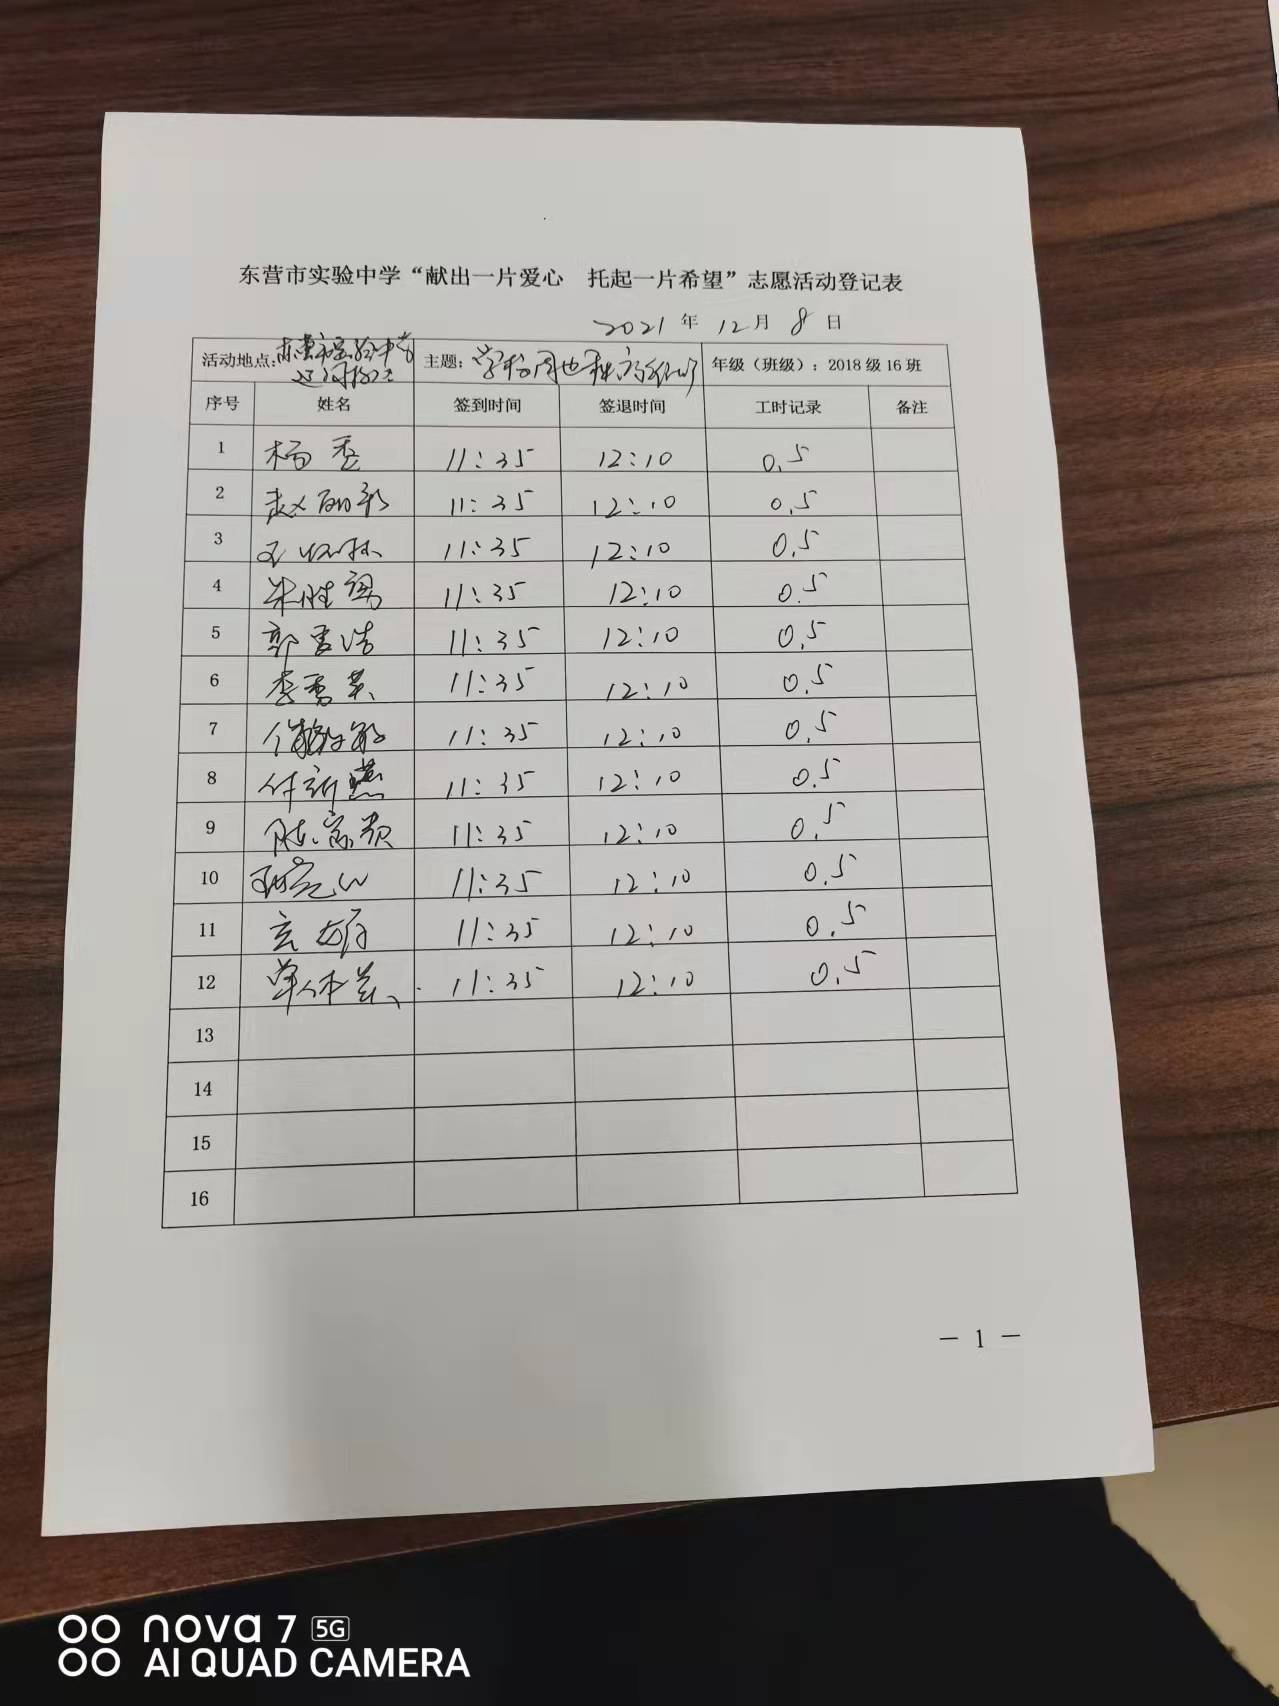 东营市实验中学“献出一片爱心　托起一片希望”志愿活动登记表
2021年 12月 8日
活动地点：东营市实验中学 主题：学校周边 年级（班级）：2018级16班
序号 姓名 签到时间 签退时间 工时记录 备注
1 杨 11:35 12:10 0.5
2 赵丽彩 11:35 12:10 0.5
3 11:35 12:10 0.5
4 11:35 12:10 0.5
5 郭雪浩 11:35 12:10 0.5
6 李雪英 11:35 12:10 0.5
7 11:35 12:10 0.5
8 付新燕 11:35 12:10 0.5
9 陈家贞 11:35 12:10 0.5
10 11:35 12:10 0.5
11 11:35 12:10 0.5
12 单体兰 11:35 12:10 0.5
13
14
15
16
— 1 —
nova 7 5G
AI QUAD CAMERA